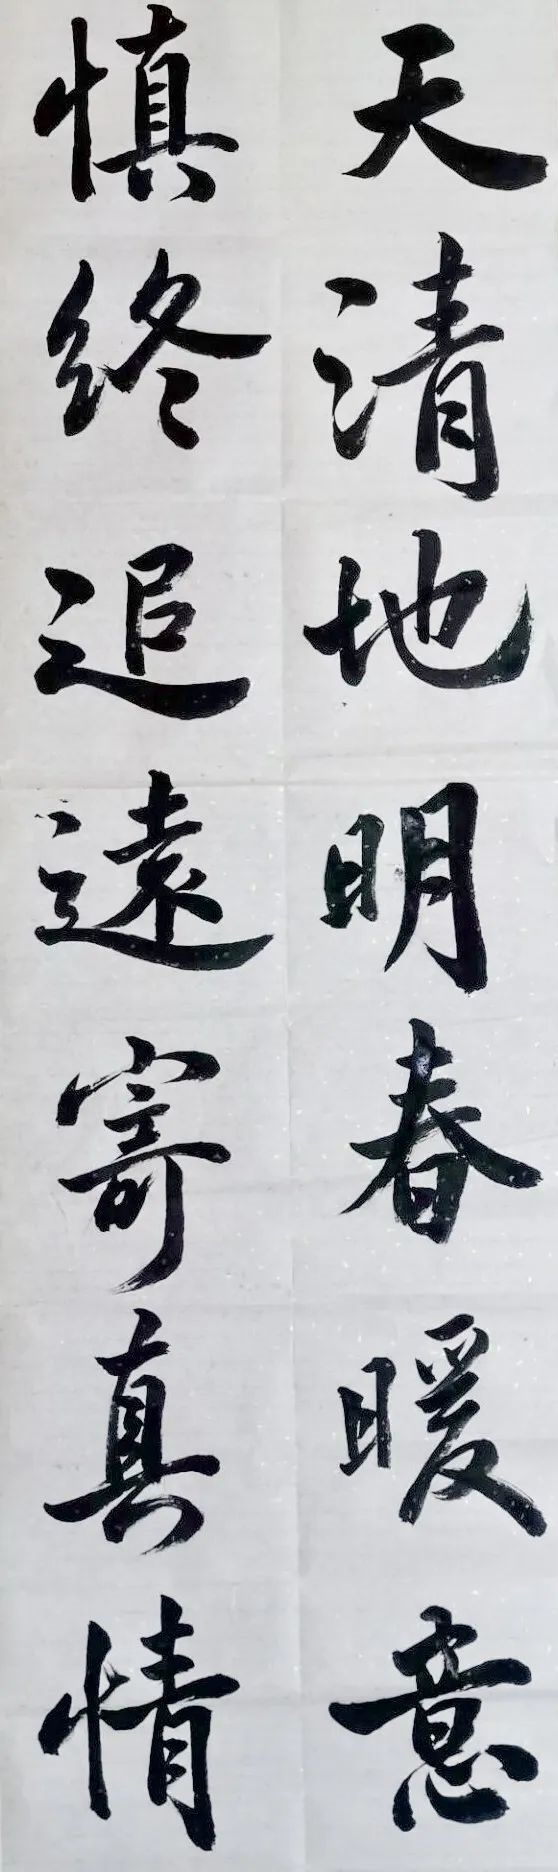 天清地明春暖意
慎终追遠寄真情